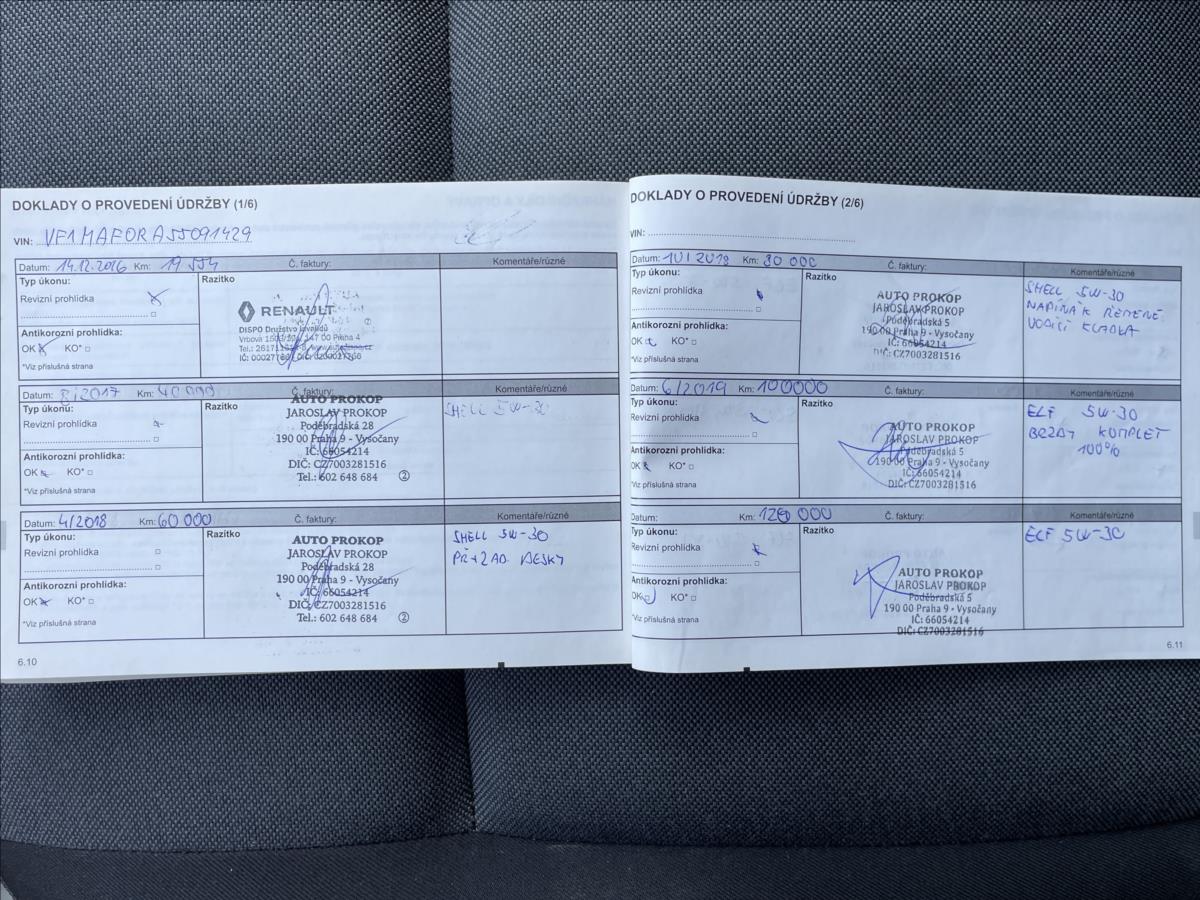 DOKLADY O PROVEDENÍ ÚDRŽBY (1/6)
VIN: VF1MAFORA55091429
Datum: 14.12.2016 Km: 19 554 Č. faktury: Komentáře/různé
Typ úkonu: Razítko
Revizní prohlídka
RENAULT
DISPO Družstvo
Antikorozní prohlídka:
OK KO*
*Viz příslušná strana
Datum: 8/2017 Km: 40 000 Č. faktury: Komentáře/různé
Typ úkonu: Razítko
Revizní prohlídka
AUTO PROKOP
JAROSLAV PROKOP
Poděbradská 28
190 00 Praha 9 - Vysočany
IČ: 66054214
DIČ: CZ7003281516
Tel.: 602 648 684 2
SHELL 5W-30
Antikorozní prohlídka:
OK KO*
*Viz příslušná strana
Datum: 4/2018 Km: 60 000 Č. faktury: Komentáře/různé
Typ úkonu: Razítko
Revizní prohlídka
AUTO PROKOP
JAROSLAV PROKOP
Poděbradská 28
190 00 Praha 9 - Vysočany
IČ: 66054214
DIČ: CZ7003281516
Tel.: 602 648 684 2
SHELL 5W-30
DESKY
Antikorozní prohlídka:
OK KO*
*Viz příslušná strana
6.10
DOKLADY O PROVEDENÍ ÚDRŽBY (2/6)
VIN:
Datum: 2018 Km: 80 000 Č. faktury: Komentáře/různé
Typ úkonu: Razítko
Revizní prohlídka
AUTO PROKOP
JAROSLAV PROKOP
Poděbradská 5
190 00 Praha 9 - Vysočany
IČ: 66054214
DIČ: CZ7003281516
SHELL 5W-30
NAPÍNÁK ŘEMENE
VODÍCÍ KLADKA
Antikorozní prohlídka:
OK KO*
*Viz příslušná strana
Datum: 6/2019 Km: 100000 Č. faktury: Komentáře/různé
Typ úkonu: Razítko
Revizní prohlídka
AUTO PROKOP
JAROSLAV PROKOP
Poděbradská 5
190 00 Praha 9 - Vysočany
IČ: 66054214
DIČ: CZ7003281516
ELF 5W-30
BRZDY KOMPLET
100%
Antikorozní prohlídka:
OK KO*
*Viz příslušná strana
Datum: Km: 120 000 Č. faktury: Komentáře/různé
Typ úkonu: Razítko
Revizní prohlídka
AUTO PROKOP
JAROSLAV PROKOP
Poděbradská 5
190 00 Praha 9 - Vysočany
IČ: 66054214
DIČ: CZ7003281516
ELF 5W-30
Antikorozní prohlídka:
OK KO*
*Viz příslušná strana
6.11